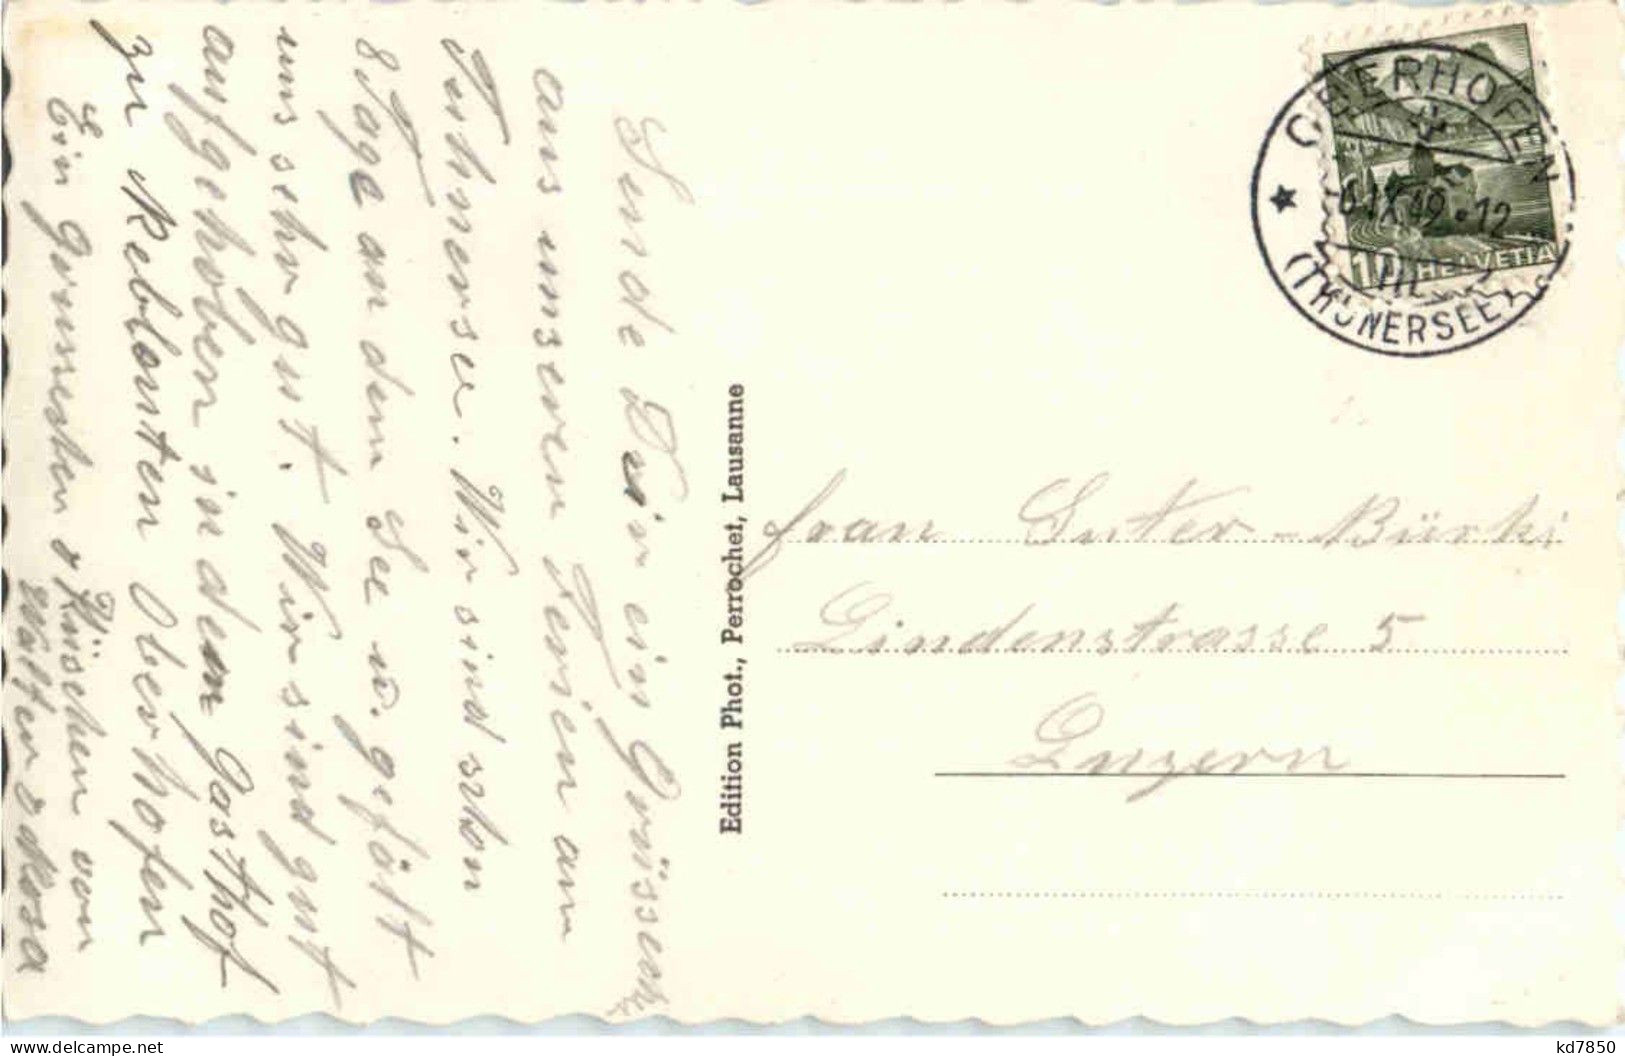 Sende Dir ein Grüssen
aus unseren Ferien am
Tuhnersee. Wir sind schon
8 Tage an dem See u. gefällt
uns sehr gut. Wir sind gut
aufgehoben in dem Gasthof
zu Rebleuten Oberhofen
Ein Grüssen & Küsschen von
Walter & Rosa
Edition Phot., Perrochet, Lausanne
OBERHOFEN
6.IX.49.12
(THUNERSEE)
10 HELVETIA
frau Suter-Bürki
Lindenstrasse 5
Luzern
kd7850